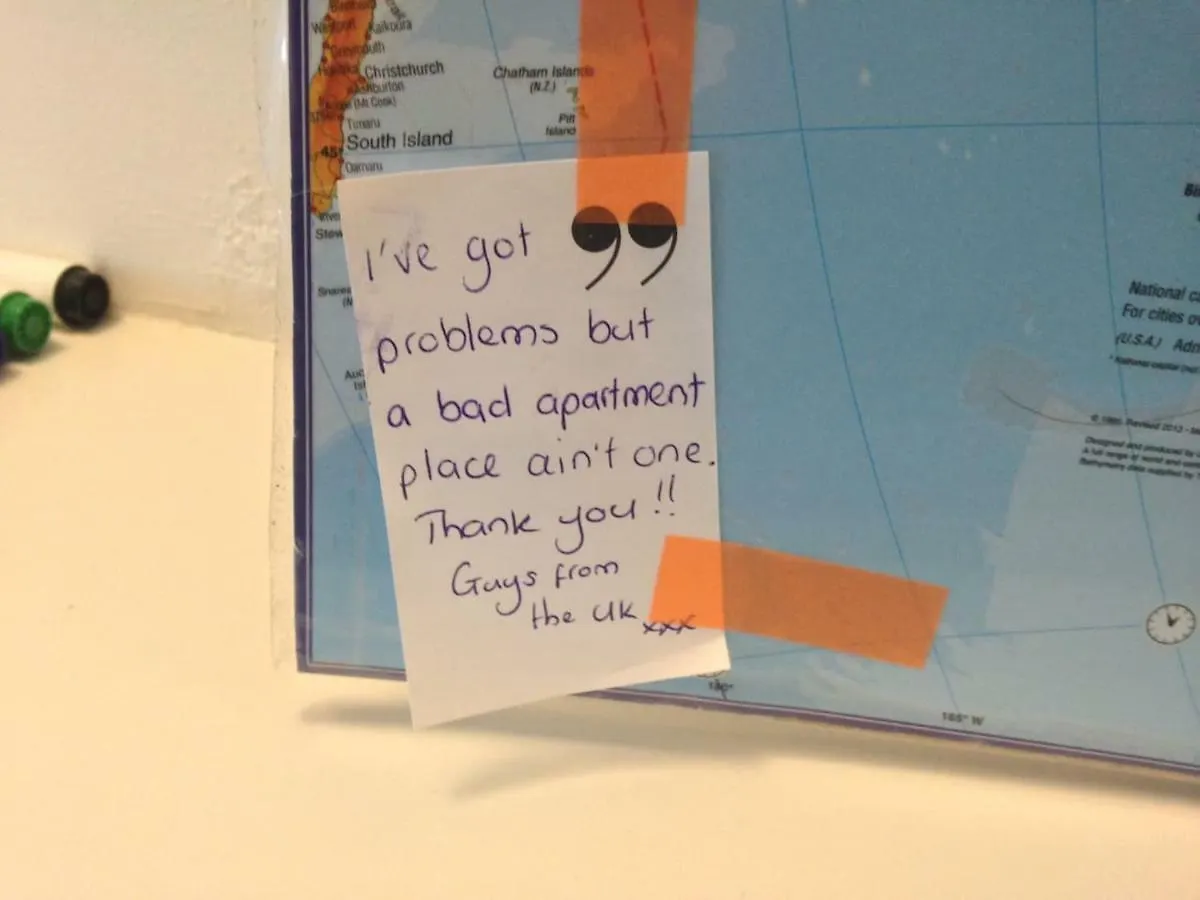 Kaikoura
Greymouth
Christchurch
Ashburton
(Mt Cook)
Timaru
South Island
45°
Oamaru
Chatham Islands
(N.Z.)
Pitt
Island
I've got ❞
problems but
a bad apartment
place ain't one.
Thank you!!
Guys from
the UK xxx
National
For cities
(U.S.A.)
180°
165° W